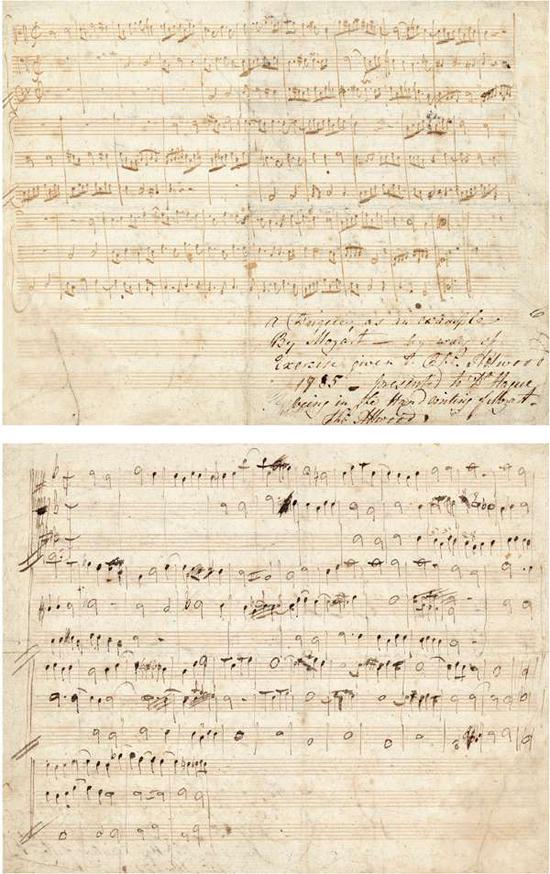 a Fugue, as an example
By Mozart — by way of
Exercise given to Thos. Attwood
1785 — presented to Dr. Hague
being in the Hand writing of Mozart.
Thos. Attwood